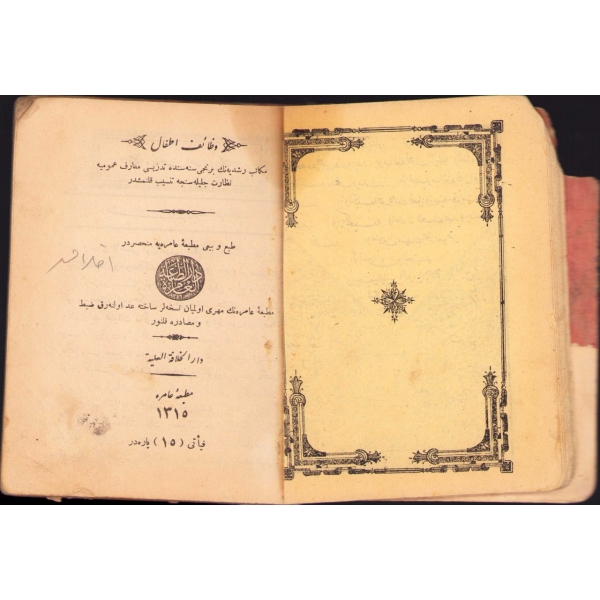 وظائف اطفال
مكاتب رشديه‌نك برنجى سنه‌سنده تدريسى معارف عموميه
نظارت جليله‌سنجه تنسيب قلنمشدر
طبع و بيعى مطبعۀ عامره‌يه منحصردر
دار الطباعة
العامره
مطبعۀ عامره‌نك مهرى اوليان نسخه‌لر ساخته عد اولنه‌رق ضبط
و مصادره قلنور
دار الخلافة العلية
مطبعۀ عامره
١٣١٥
فيأتى (١٥) پاره‌در